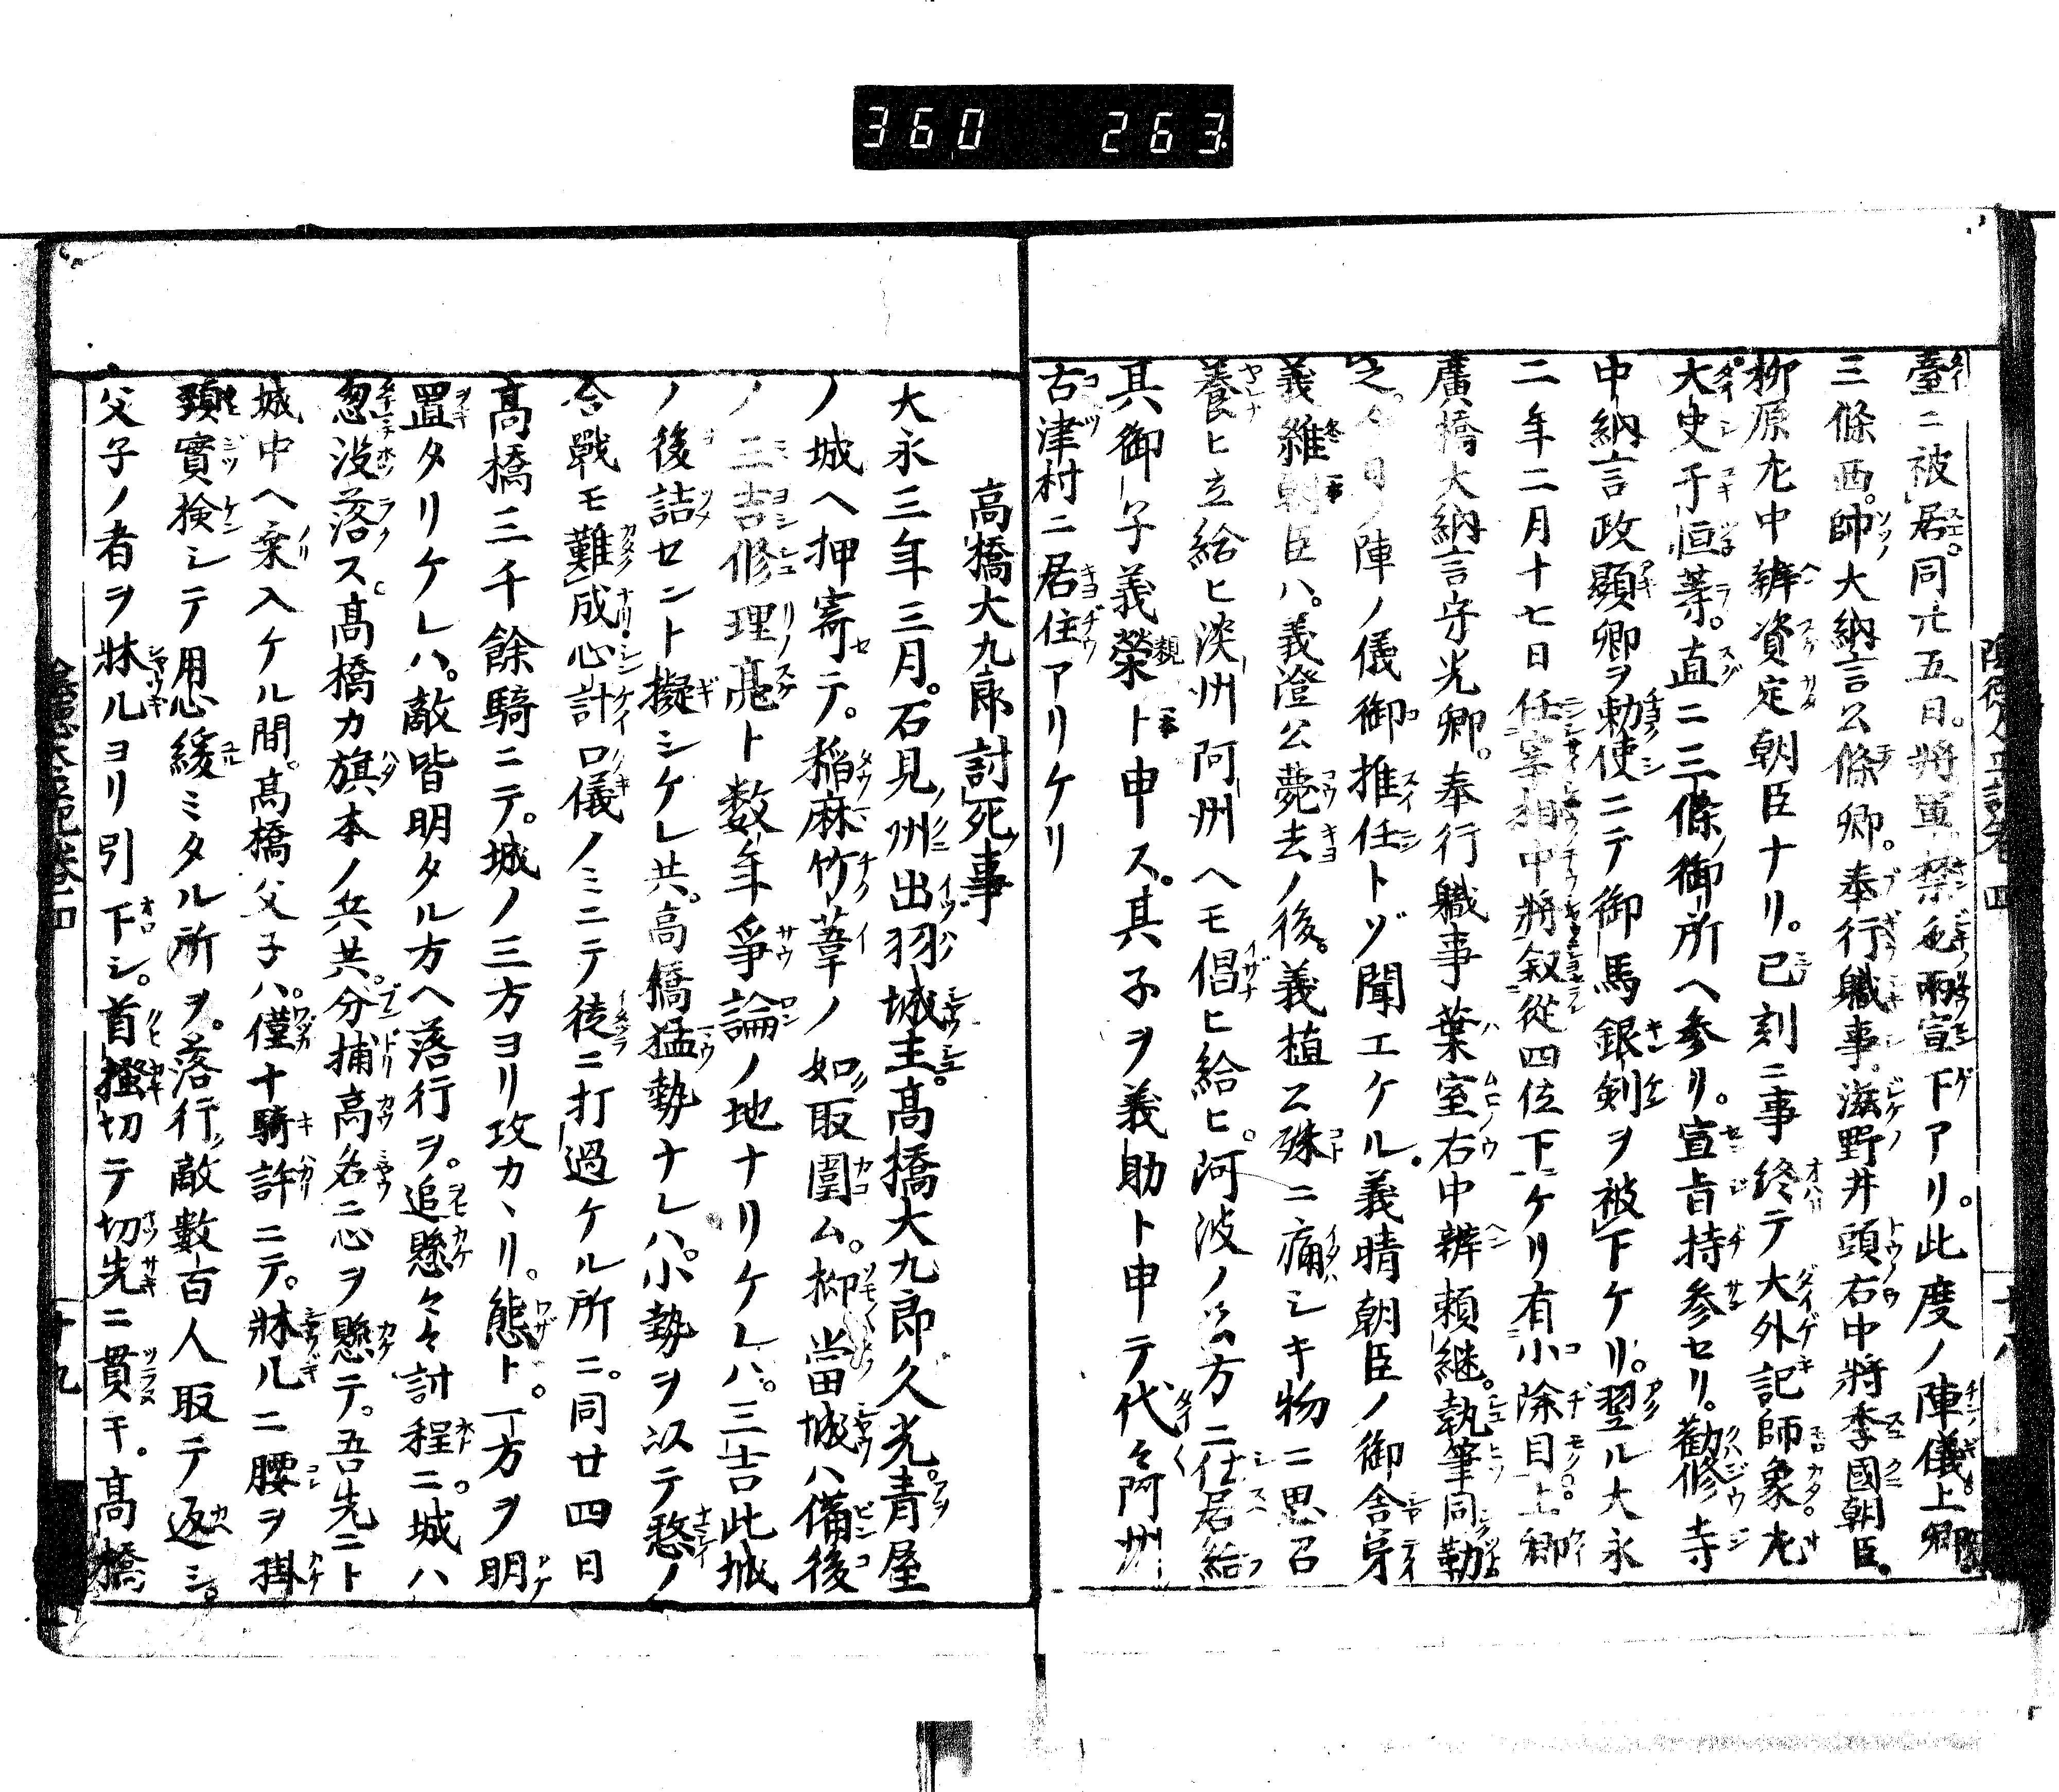 360 263
臺ニ被居。同廿五日。將軍禁色兩宣下アリ。此度ノ陣儀。上卿
三條西。帥大納言公條卿。奉行職事。滋野井頭右中將季國朝臣。
柳原左中辨資定朝臣ナリ。已刻ニ事終テ大外記師象。左
大史于恒等。直ニ三條御所ヘ參リ。宣旨持參セリ。勸修寺
中納言政顯卿ヲ勅使ニテ御馬銀剣ヲ被下ケリ。翌ル大永
二年二月十七日任宰相中將叙從四位下ケリ有小除目。上卿
廣橋大納言守光卿。奉行職事葉室右中辨頼継。執筆同勤
之。今日ノ陣ノ儀御推任トゾ聞エケル。義晴朝臣ノ御舎弟
義維朝臣ハ。義澄公薨去ノ後。義植公殊ニ痛シキ物ニ思召
養ヒ立給ヒ淡州阿州ヘモ倡ヒ給ヒ。阿波ノ公方ニ仕居給
其御子義榮ト申ス。其子ヲ義助ト申テ代々阿州
古津村ニ居住アリケリ
高橋大九郎討死事
大永三年三月。石見ノ州出羽ノ城主。高橋大九郎久光。青屋
ノ城ヘ押寄テ。稲麻竹葦ノ如取圍ム。抑當城ハ備後
ノ三吉修理亮ト数年爭論ノ地ナリケレハ。三吉此城
ノ後詰セント擬シケレ共。高橋猛勢ナレハ。小勢ヲ以テ憖ノ
合戰モ難成心計ロ儀ノミニテ徒ニ打過ケル所ニ。同廿四日
高橋三千餘騎ニテ。城ノ三方ヨリ攻カヽリ。態ト。一方ヲ明
置タリケレハ。敵皆明タル方ヘ落行ヲ。追懸々々討程ニ。城ハ
忽没落ス。高橋カ旗本ノ兵共。分捕高名ニ心ヲ懸テ。吾先ニト
城中ヘ乘入ケル間。高橋父子ハ。僅十騎許ニテ。牀几ニ腰ヲ掛
頸實檢シテ用心緩ミタル所ヲ。落行敵數百人取テ返シ。
父子ノ者ヲ牀几ヨリ引下シ。首掻切テ切先ニ貫キ。高橋
十九